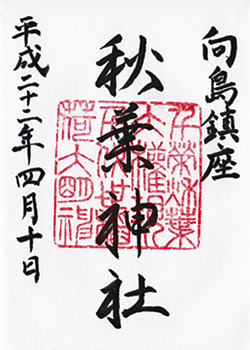 向島鎮座
秋葉神社
平成二十二年四月十日